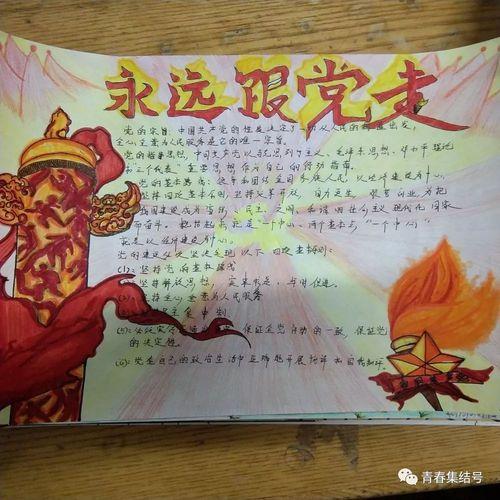 永远跟党走
党的宗旨:中国共产党的性质决定了一切从人民的利益出发,
全心全意为人民服务是它的唯一宗旨。
党的指导思想:中国共产党以马克思列宁主义、毛泽东思想、邓小平理论
和"三个代表"重要思想作为自己的行动指南。
党的基本路线:领导和团结全国各族人民,以经济建设为中心,
坚持四项基本原则,坚持改革开放,自力更生,艰苦创业,为把
我国建设成为富强、民主、文明、和谐的社会主义现代化国家
而奋斗。概括起来就是"一个中心,两个基本点","一个中心"
就是以经济建设为中心。
党的建设必须坚决实现以下四项基本
(1):坚持党的基本路线
坚持解放思想,实事求是,与时俱进。
坚持全心全意为人民服务
坚持民主集中制
保证全党行动的一致,保证党
的决定
党在自己的政治生活中正确地开展批评和自我批评。
青春集结号